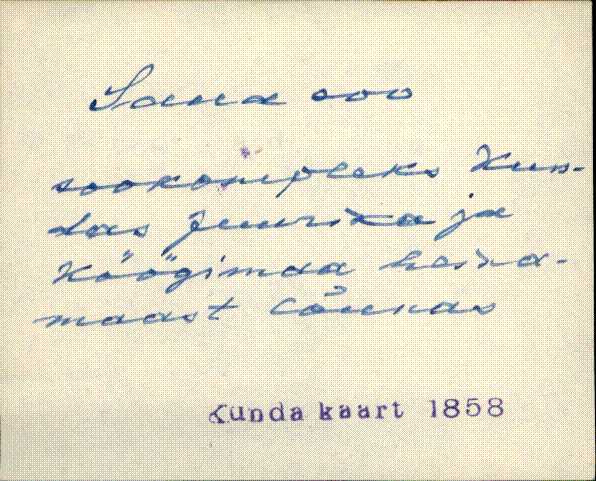 Sana soo
sookompleks Kun-
das Juurika ja
Köögimaa heina-
maast lõunas
Kunda kaart 1858